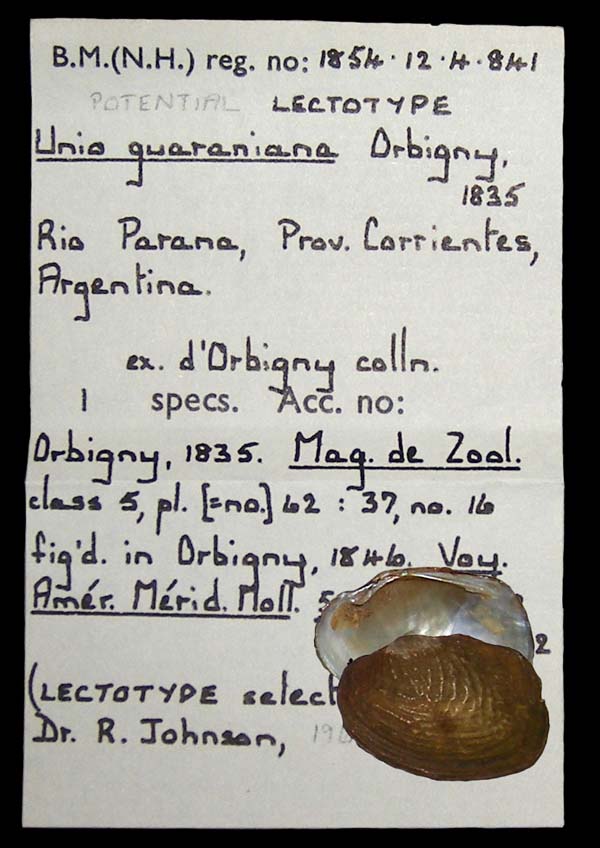 B.M.(N.H.) reg. no: 1854·12·4·841
POTENTIAL LECTOTYPE
Unio guaraniana Orbigny,
1835
Rio Parana, Prov. Corrientes,
Argentina.
ex. d'Orbigny colln.
1 specs. Acc. no:
Orbigny, 1835. Mag. de Zool.
class 5, pl. [=no.] 62 : 37, no. 16
fig'd. in Orbigny, 1846. Voy.
Amér. Mérid. Moll.
2
(LECTOTYPE select
Dr. R. Johnson,